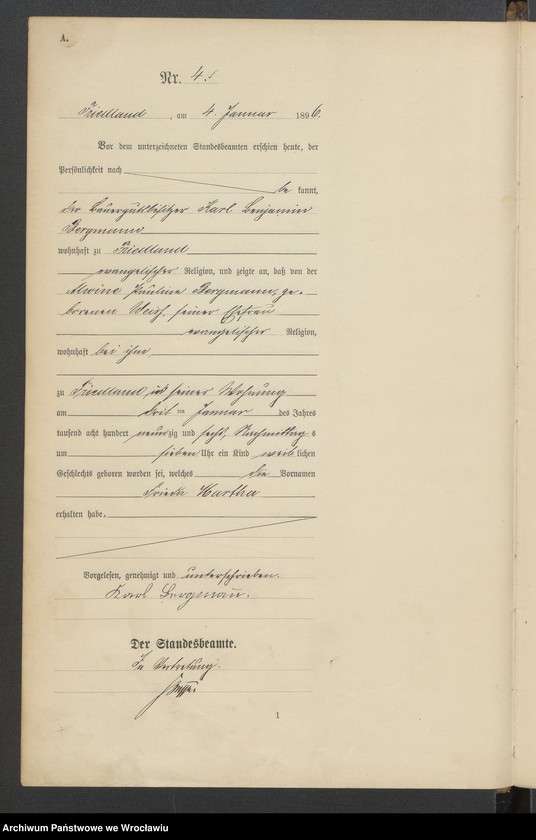 A.
Nr. 4.
Friedland, am 4. Januar 1896.
Vor dem unterzeichneten Standesbeamten erschien heute, der
Persönlichkeit nach
be kannt,
der Bauergutsbesitzer Karl Benjamin
Bergmann
wohnhaft zu Friedland
evangelischer Religion, und zeigte an, daß von der
Alwine Pauline Bergmann, ge-
borenen Weiß, seiner Ehefrau
evangelischer Religion,
wohnhaft bei ihm
zu Friedland in seiner Wohnung
am drit ten Januar des Jahres
tausend acht hundert neunzig und sechs, Nachmittag s
um sieben Uhr ein Kind weib lichen
Geschlechts geboren worden sei, welches die Vornamen
Frieda Martha
erhalten habe.
Vorgelesen, genehmigt und unterschrieben.
Karl Bergmann.
Der Standesbeamte.
In Vertretung.
1
Archiwum Państwowe we Wrocławiu